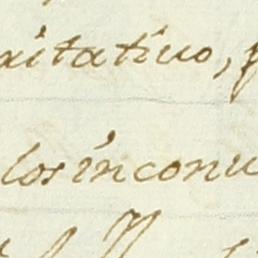 xitatiuo, p
los inconu